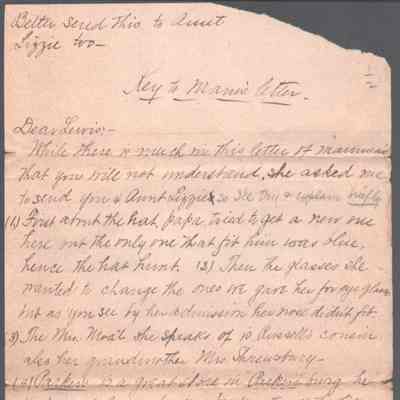 Better send this to Aunt
Lizzie too—
Key to Mama's letter.
Dear Lewis:-
While there is much in this letter of mamma's
that you will not understand, she asked me
to send you & Aunt Lizzie so I'll try & explain briefly
(1) First about the hat, papa tried to get a new one
here but the only one that fit him was blue,
hence the hat hunt. (2) Then the glasses she
wanted to change the ones we gave her for eye glasses
but as you see by her admission her nose didn't fit.
3) The Mrs. Moat she speaks of is Russell's cousin
also her grandmother Mrs Shrewsbury—
is a great store in Parkersburg he